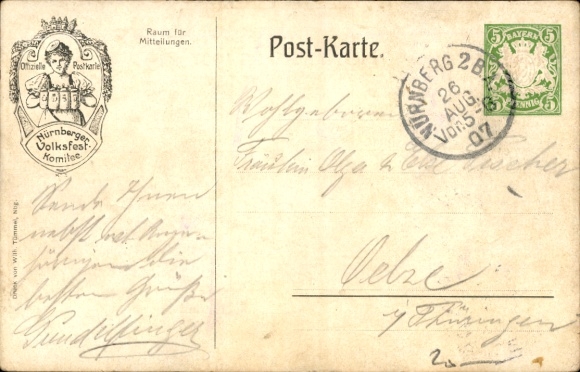 Raum für
Mitteilungen.
Post-Karte.
Offizielle Postkarte
Nürnberger
Volksfest-
Komitee
BAYERN
5 5
PFENNIG
5 5
NÜRNBERG 2 B.
26
AUG.
Vor. 5-6
07
Wohlgeboren
Fräulein Olga & Else Fischer
Oelze
i/Thüringen
Sende Ihnen
nebst
die
besten Grüße
Druck von Wilh. Tümmel, Nbg.